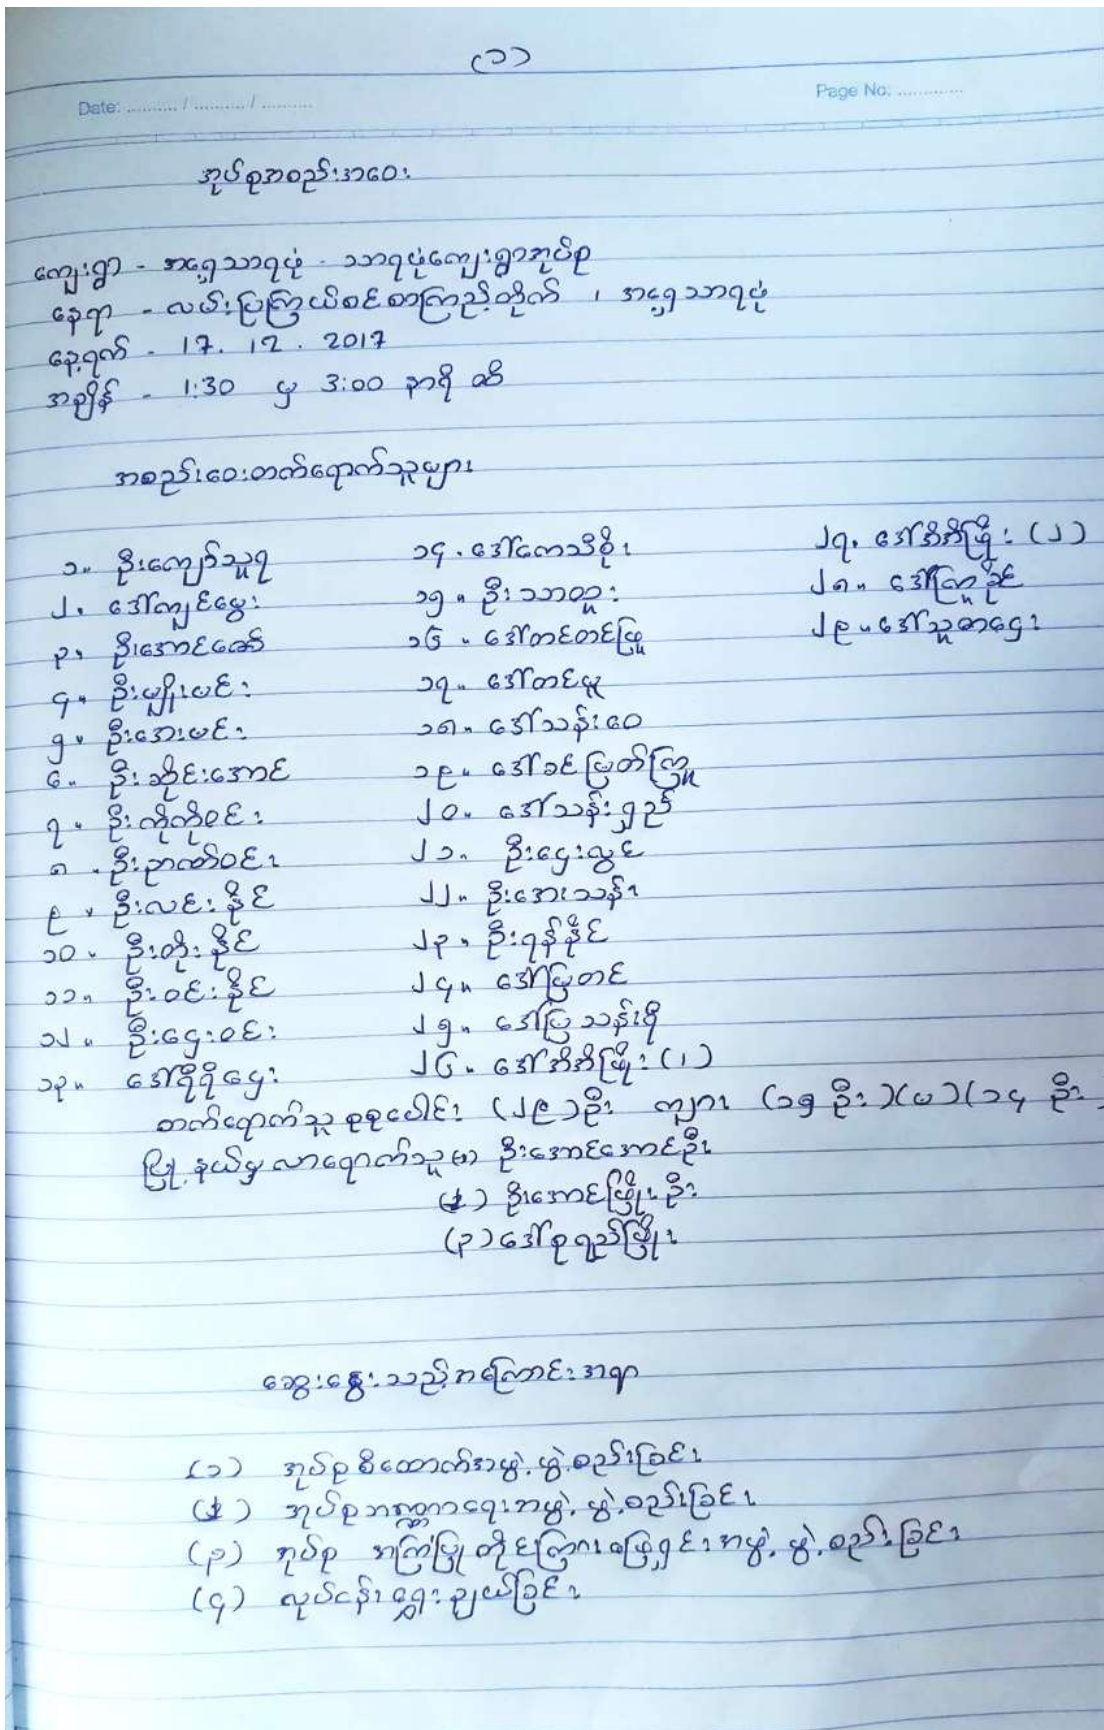 (၁)
Date: .......... / .......... / ..........
Page No: .............
အုပ်စုအစည်းအဝေး
ကျေးရွာ - အရှေ့သာရဖုံ - သာရဖုံကျေးရွာအုပ်စု
နေရာ - လမ်းပြကြယ်စင်စာကြည့်တိုက် ၊ အရှေ့သာရဖုံ
နေ့ရက် - 17. 12. 2017
အချိန် - 1:30 မှ 3:00 နာရီ ထိ
အစည်းဝေးတက်ရောက်သူများ
၁။ ဦးကျော်သူရ
၂။ ဒေါ်ကျင်မွေး
၃။ ဦးအောင်ဇော်
၄။ ဦးမျိုးမင်း
၅။ ဦးအေးမင်း
၆။ ဦးဆိုင်းအောင်
၇။ ဦးကိုကိုဝင်း
၈။ ဦးဉာဏ်ဝင်း
၉။ ဦးလင်းနိုင်
၁၀။ ဦးတိုးနိုင်
၁၁။ ဦးဝင်းနိုင်
၁၂။ ဦးဌေးဝင်း
၁၃။ ဒေါ်ရီရီဌေး
၁၄။ ဒေါ်ကေသီစိုး
၁၅။ ဦးသာထူး
၁၆။ ဒေါ်တင်တင်ဖြူ
၁၇။ ဒေါ်တင်ပု
၁၈။ ဒေါ်သန်းဝေ
၁၉။ ဒေါ်ခင်မြတ်ကြူ
၂၀။ ဒေါ်သန်းရှည်
၂၁။ ဦးဌေးလွင်
၂၂။ ဦးအေးသန်း
၂၃။ ဦးရန်နိုင်
၂၄။ ဒေါ်မြတင်
၂၅။ ဒေါ်မြသန်းရီ
၂၆။ ဒေါ်အိအိဖြိုး (၁)
၂၇။ ဒေါ်အိအိဖြိုး (၂)
၂၈။ ဒေါ်ကြူခိုင်
၂၉။ ဒေါ်သူဇာဌေး
တက်ရောက်သူ စုစုပေါင်း (၂၉)ဦး ကျား (၁၅ ဦး)(မ)(၁၄ ဦး)
မြို့နယ်မှလာရောက်သူ (၁) ဦးအောင်အောင်ဦး
(၂) ဦးအောင်ဖြိုးဦး
(၃) ဒေါ်စုရည်ဖြိုး
ဆွေးနွေးသည့်အကြောင်းအရာ
(၁) အုပ်စုစီထောက်အဖွဲ့ဖွဲ့စည်းခြင်း
(၂) အုပ်စုဘဏ္ဍာရေးအဖွဲ့ဖွဲ့စည်းခြင်း
(၃) အုပ်စု အကြံပြုတိုင်ကြားဖြေရှင်းအဖွဲ့ဖွဲ့စည်းခြင်း
(၄) လုပ်ငန်းရွေးချယ်ခြင်း